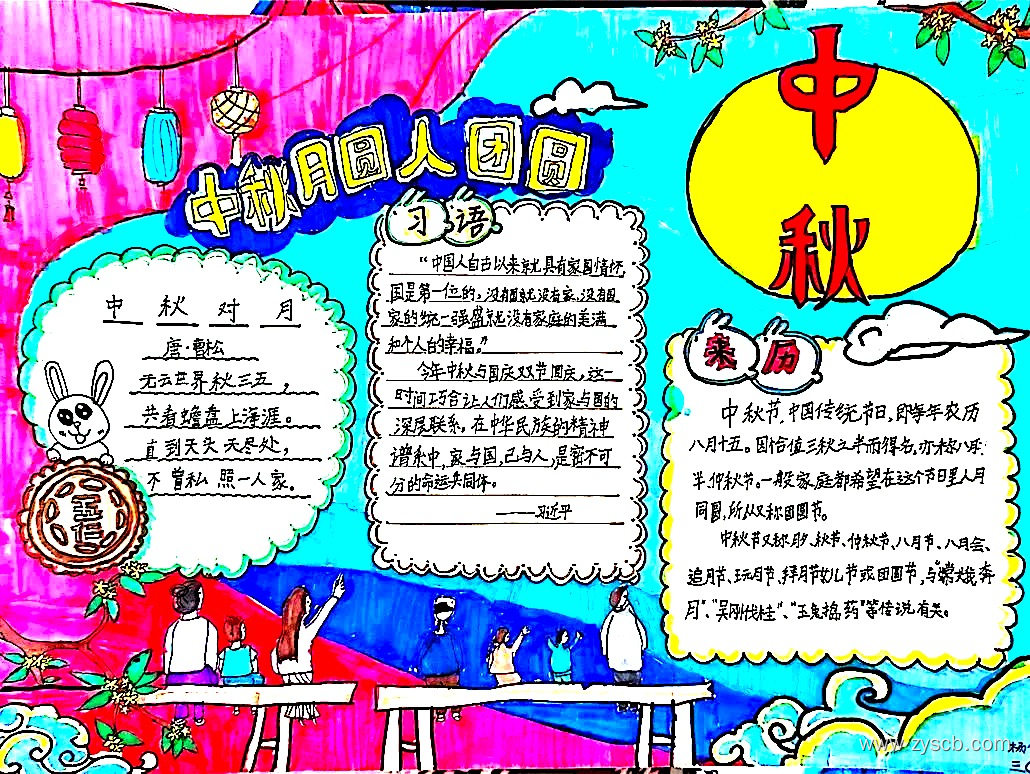 中秋月圆人团圆
中秋
中秋对月
唐·曹松
无云世界秋三五，
共看蟾盘上海涯。
直到天头天尽处，
不曾私照一人家。
五仁
习语
“中国人自古以来就具有家国情怀,
国是第一位的，没有国就没有家，没有国
家的统一强盛就没有家庭的美满
和个人的幸福。”
今年中秋与国庆双节同庆，这一
时间巧合让人们感受到家与国的
深度联系，在中华民族的精神
谱系中，家与国，己与人，是密不可
分的命运共同体。
——习近平
来历
中秋节，中国传统节日，即每年农历
八月十五。因恰值三秋之半而得名，亦称八月
半、仲秋节。一般家庭都希望在这个节日里人月
同圆，所以又称团圆节。
中秋节又称月夕、秋节、仲秋节、八月节、八月会、
追月节、玩月节、拜月节女儿节或团圆节，与“嫦娥奔
月”、“吴刚伐桂”、“玉兔捣药”等传说有关。
www.zyscb.com
杨
三